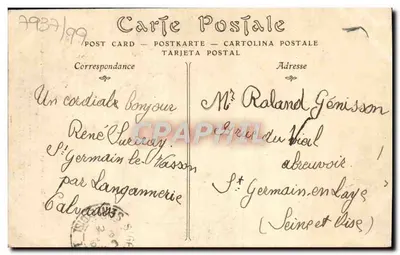 7937/99
Carte Postale
POST CARD — POSTKARTE — CARTOLINA POSTALE
TARJETA POSTAL
Correspondance
Adresse
Un cordial bonjour
René
St Germain le Vasson
par Langannerie
Calvados
Mr Roland Génisson
du Vieil
abreuvoir
St Germain en Laye
(Seine et Oise)